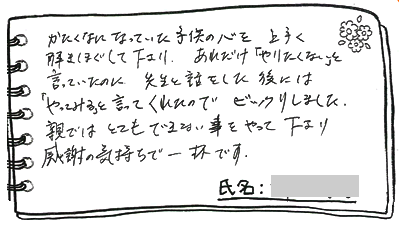 かたくなになっていた子供の心を 上手く
解きほぐして下さり、あれだけ「やりたくない」と
言っていたのに 先生と話をした後には
「やってみる」と言ってくれたので ビックリしました。
親では とてもできない事をやって下さり
感謝の気持ちで一杯です。
氏名: